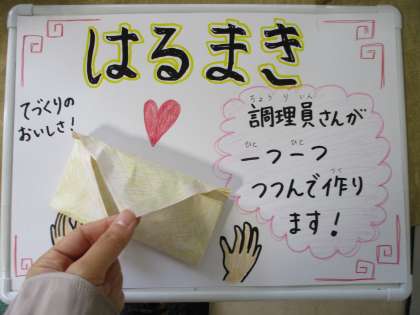 はるまき
てづくりの
おいしさ!
ちょうりいん
調理員さんが
ひと ひと
一つ一つ
つつんで作り
つく
ます!